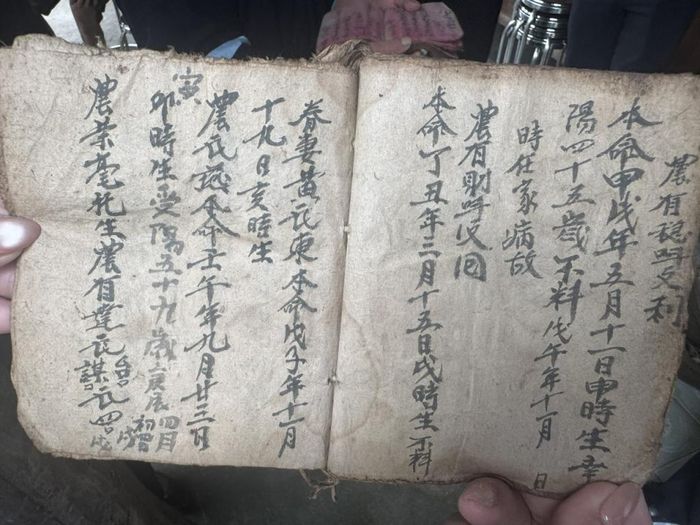 農有認呼又利
本命甲戌年五月十一日申時生幸
陽四十五歲不料戊午年十一月 日
時在家病故
農有財呼又囘
本命丁丑年二月十五日戌時生不料
眷妻黃氏東本命戊子年十一月
十九日亥時生
農氏認本命壬午年九月廿三日
寅
卯時生受陽五十九歲庚辰四月初
農業毫花生農有達氏謀氏四